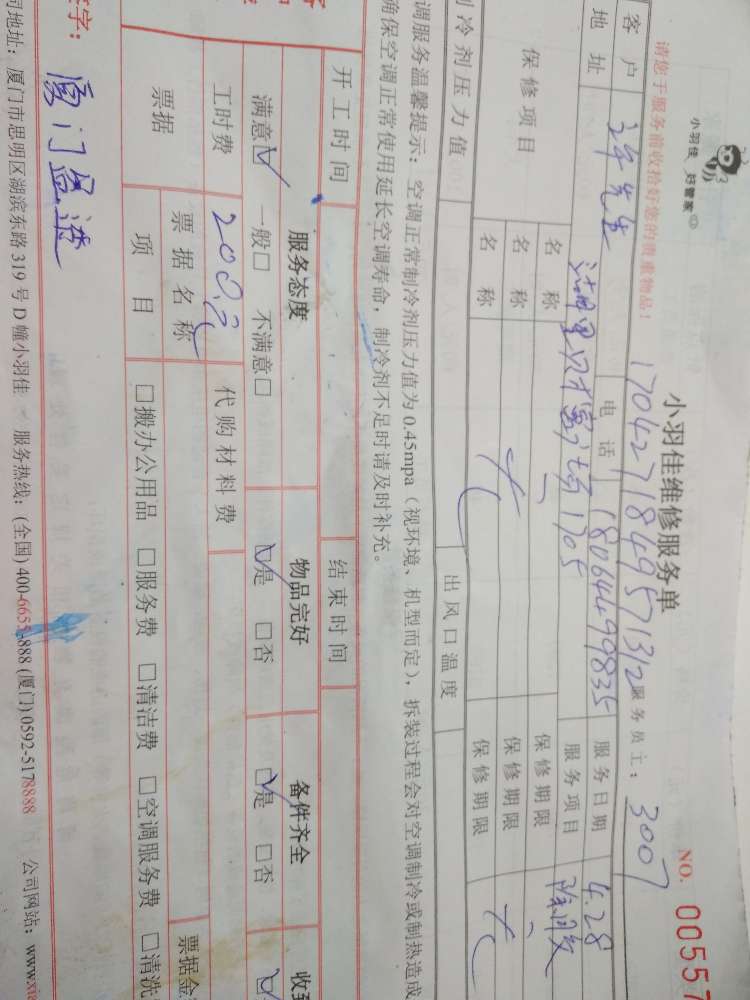 小羽佳 好管家
小羽佳维修服务单
NO. 00557
请您于服务前收拾好您的贵重物品!
1704271849571312
服务员工: 3007
客户 先生 电话 18064499835 服务日期 4.28
地址 1705 服务项目
保修项目 名称 保修期限
名称 保修期限
名称 保修期限
制冷剂压力值 出风口温度
调服务温馨提示:空调正常制冷剂压力值为0.45mpa(视环境、机型而定),拆装过程会对空调制冷或制热造成
确保空调正常使用延长空调寿命,制冷剂不足时请及时补充。
开工时间 结束时间
服务态度 物品完好 备件齐全 收到
满意☑ 一般□ 不满意□ ☑是 □否 ☑是 □否 ☑
工时费 200 代购材料费
票据 票据名称 票据金
项目 □搬办公用品 □服务费 □清洁费 □空调服务费 □清洗
签字:
司地址:厦门市思明区湖滨东路319号D幢小羽佳 服务热线:(全国)400-6655-888 (厦门)0592-5178888 公司网站:www.xi